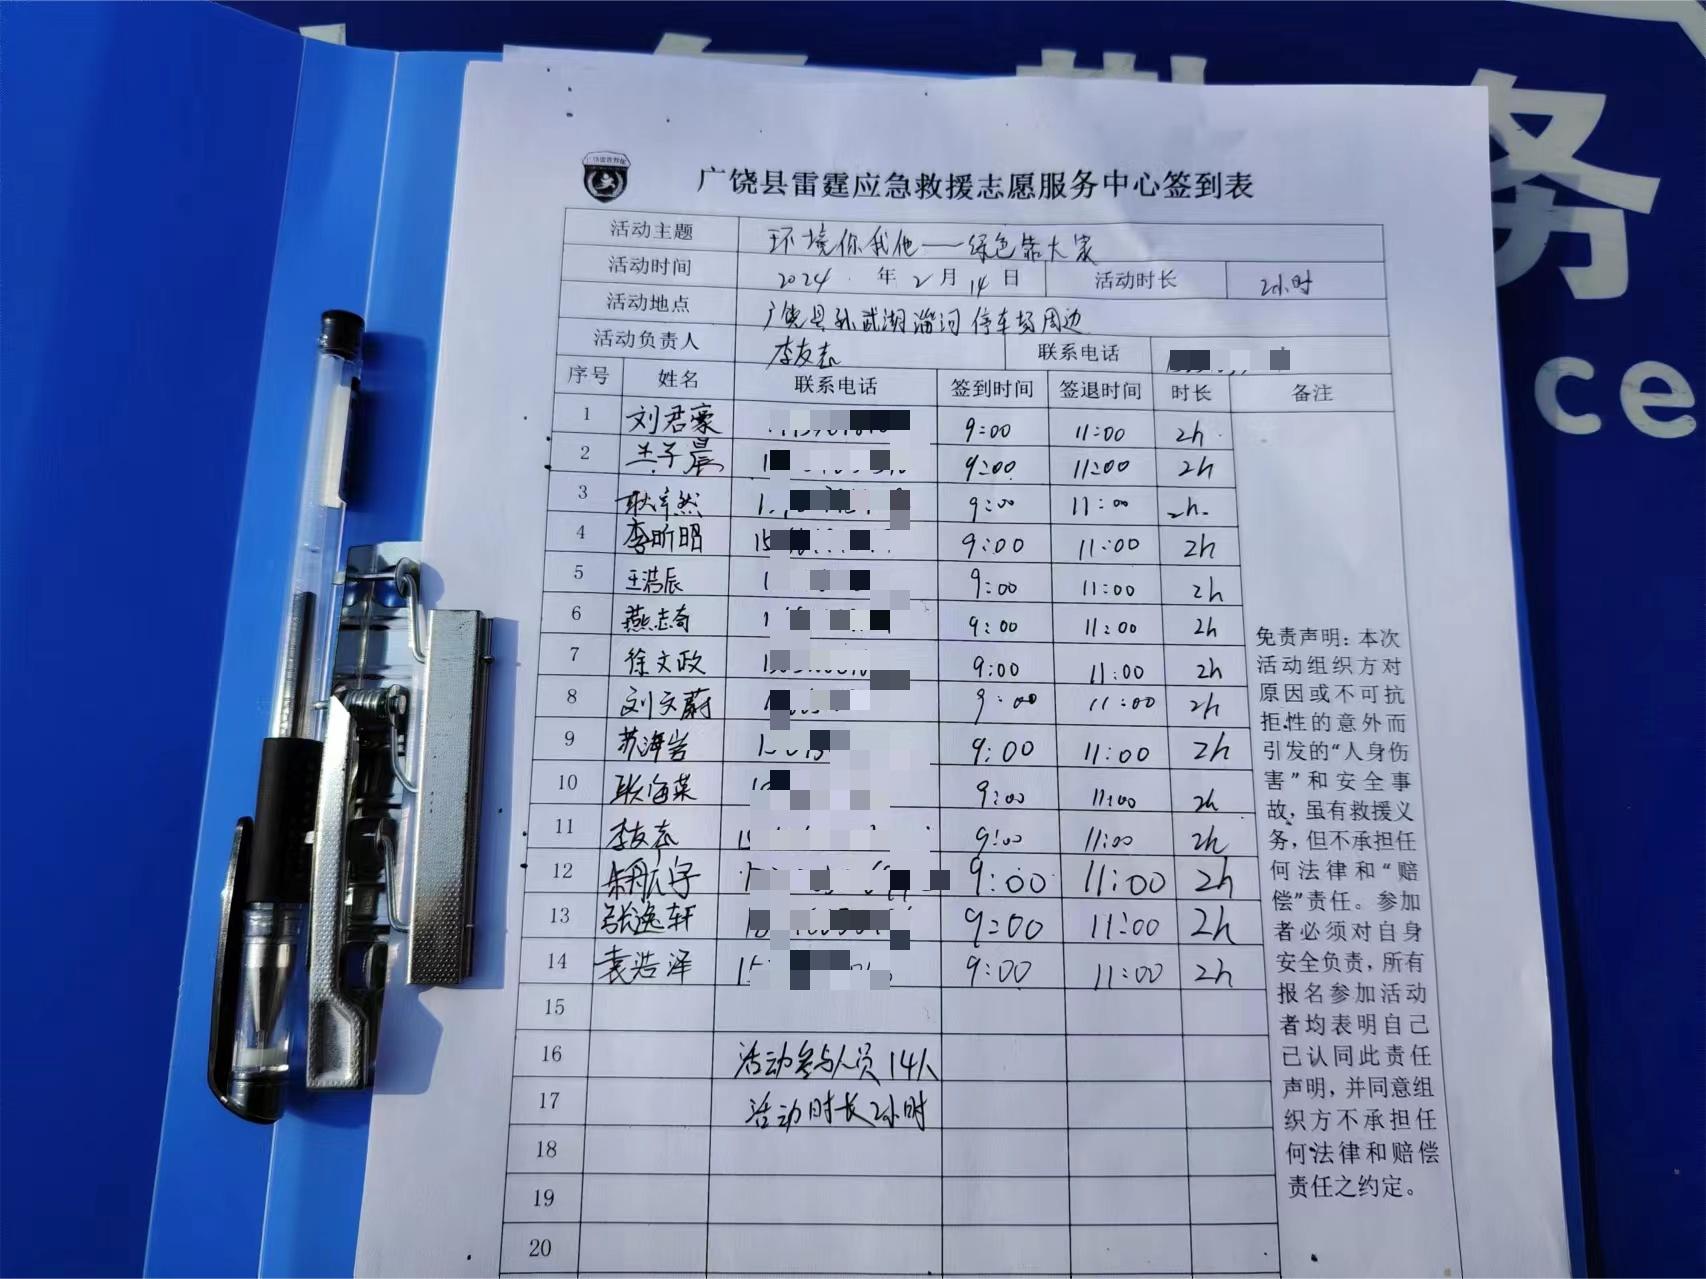 务
ce
广饶县雷霆应急救援志愿服务中心签到表
活动主题 环境你我他——绿色靠大家
活动时间 2024年2月14日 活动时长 2小时
活动地点 广饶县孙武湖淄河停车场周边
活动负责人 李友志 联系电话
序号 姓名 联系电话 签到时间 签退时间 时长 备注
1 刘君豪 9:00 11:00 2h
2 王子晨 9:00 11:00 2h
3 9:00 11:00 2h
4 李昕昭 9:00 11:00 2h
5 王浩辰 9:00 11:00 2h
6 燕志奇 9:00 11:00 2h
7 徐文政 9:00 11:00 2h
8 刘文蔚 9:00 11:00 2h
9 苏海岩 9:00 11:00 2h
10 耿海荣 9:00 11:00 2h
11 李友志 9:00 11:00 2h
12 朱航宇 9:00 11:00 2h
13 张逸轩 9:00 11:00 2h
14 袁浩泽 9:00 11:00 2h
15
16 活动参与人员14人
17 活动时长2小时
18
19
20
免责声明:本次
活动组织方对
原因或不可抗
拒性的意外而
引发的“人身伤
害”和安全事
故,虽有救援义
务,但不承担任
何法律和“赔
偿”责任。参加
者必须对自身
安全负责,所有
报名参加活动
者均表明自己
已认同此责任
声明,并同意组
织方不承担任
何法律和赔偿
责任之约定。